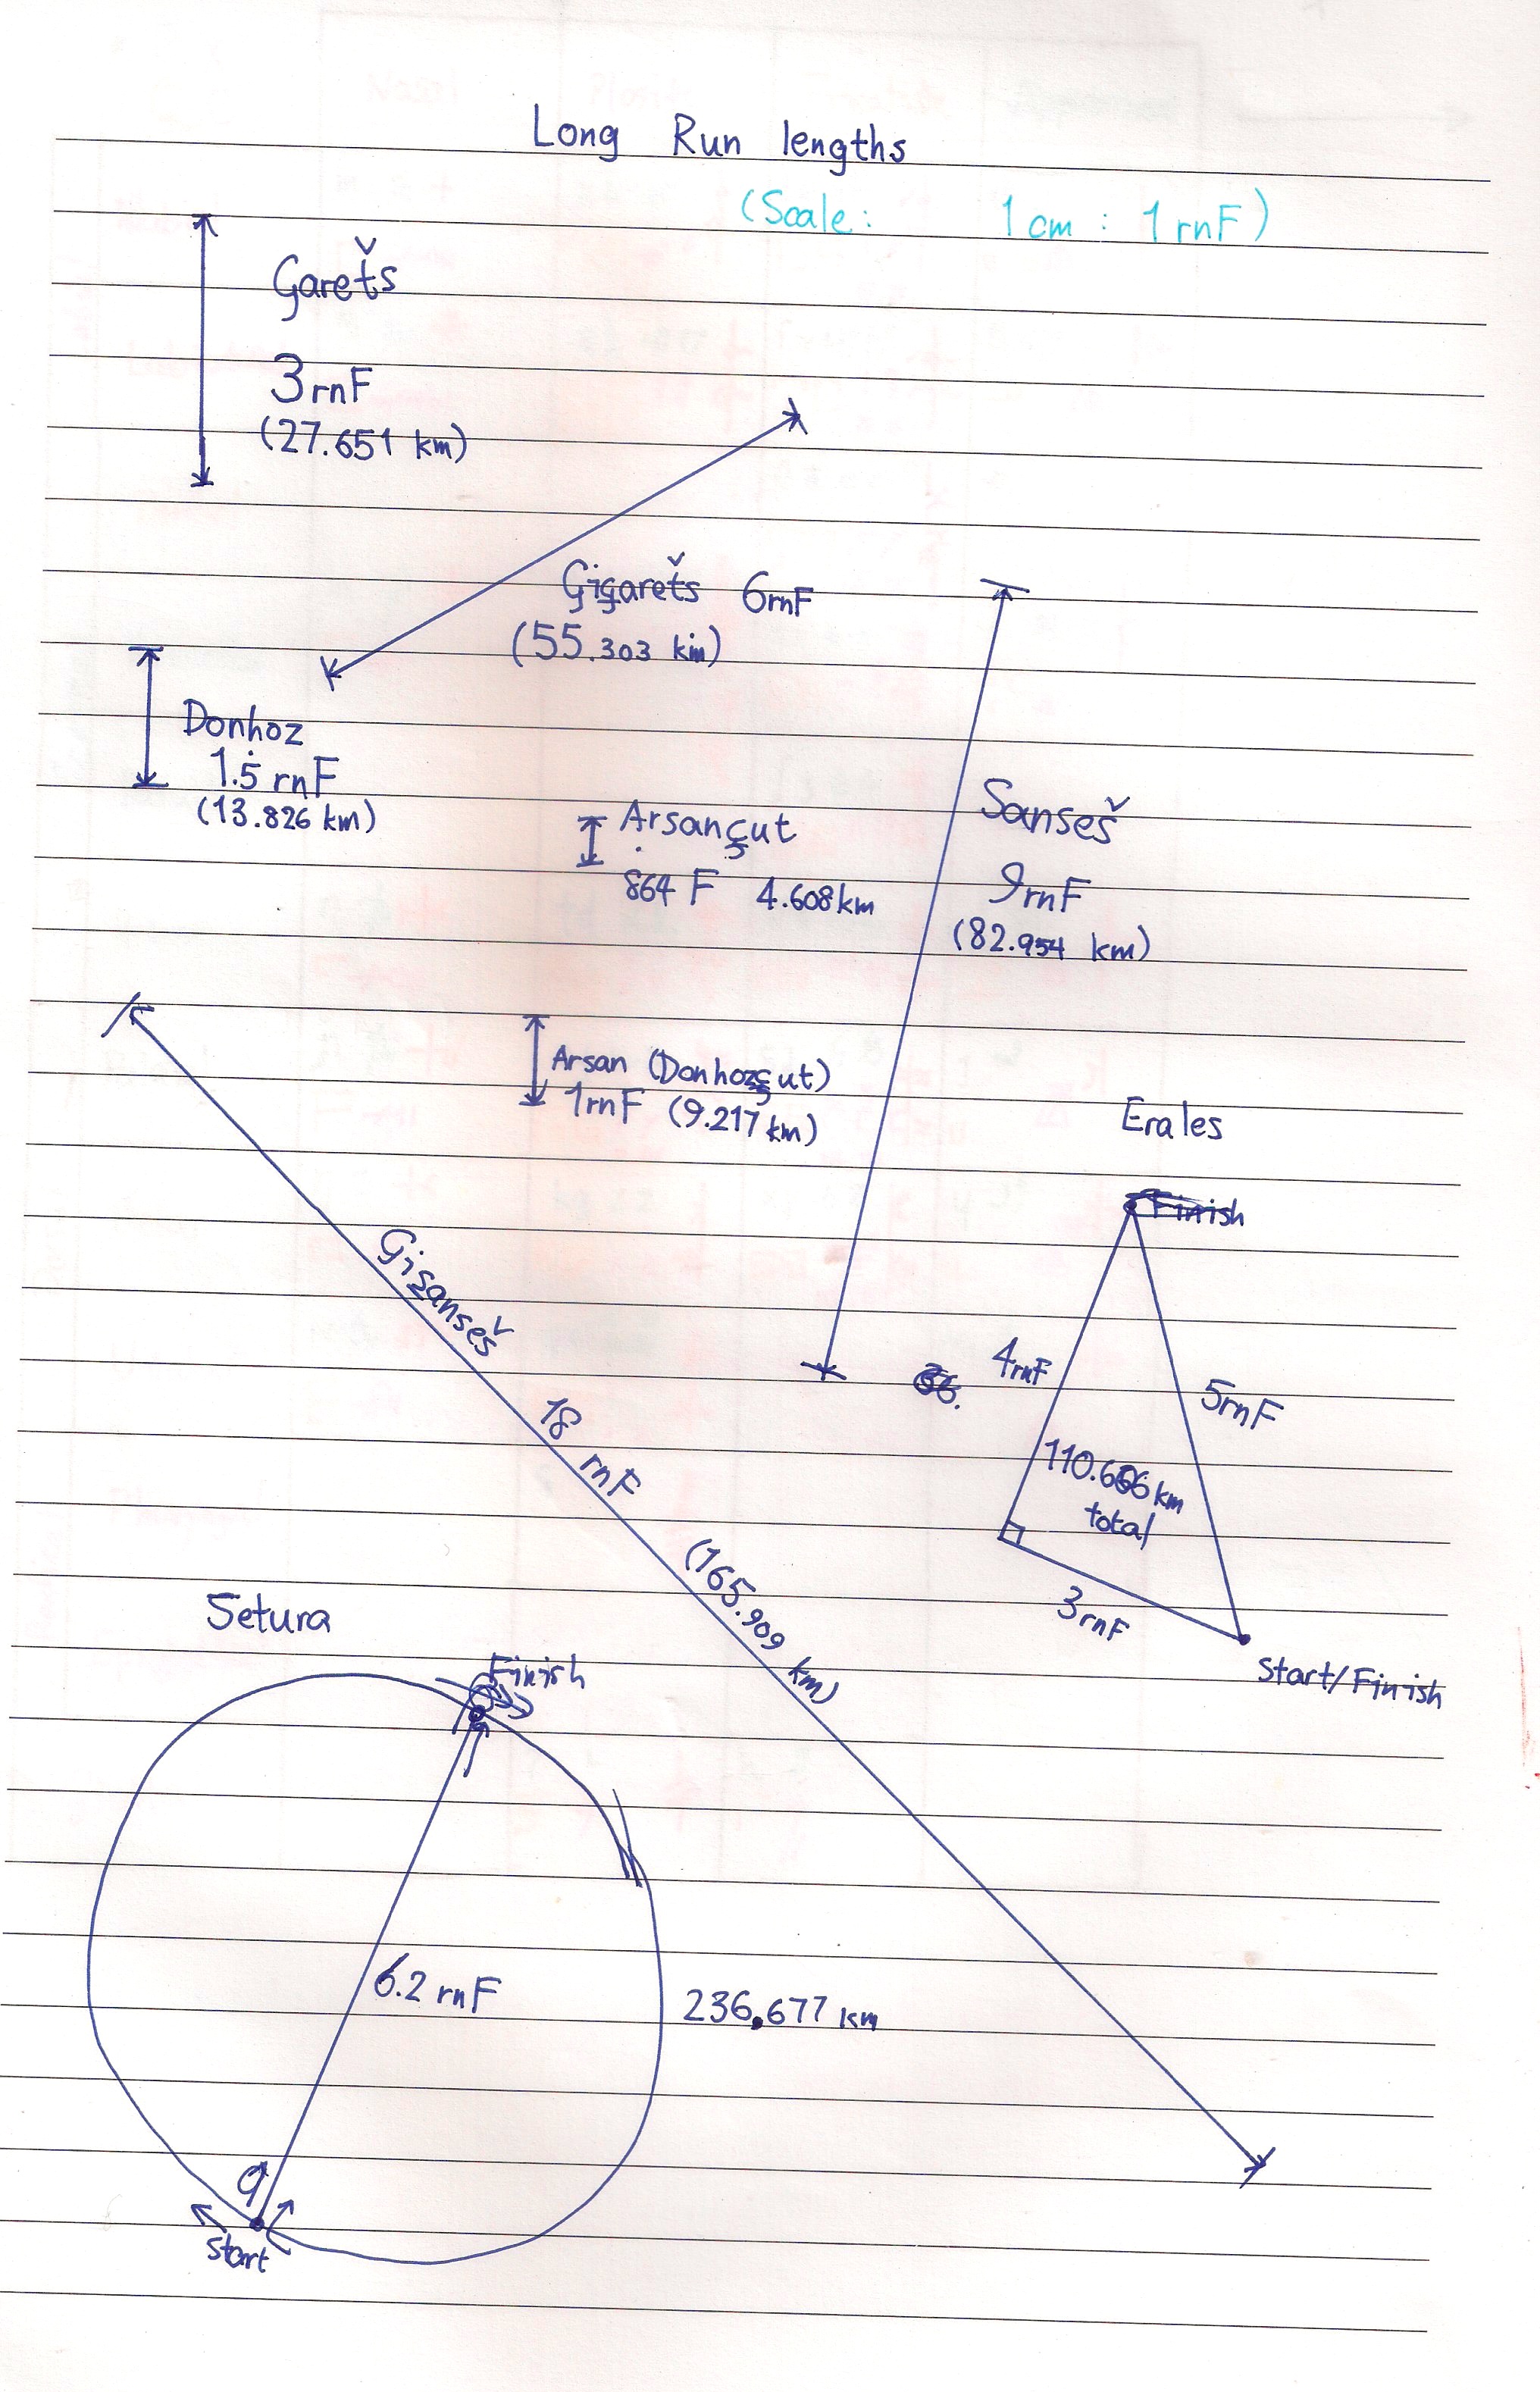 Long Run lengths
(Scale: 1cm : 1rnF)
Ģarět̆s
3rnF
(27.651 km)
Ģigarět̆s 6rnF
(55.303 km)
Donhoz
1.5 rnF
(13.826 km)
Arsançut
864 F 4.608km
Sansěš
9rnF
(82.954 km)
Arsan (Donhozçut)
1rnF (9.217km)
Erales
Finish
4rnF
5rnF
110.606km
total
3rnF
Start/Finish
18 rnF
(165.909 km)
Setura
Finish
6.2 rnF
236.677 km
9
Start